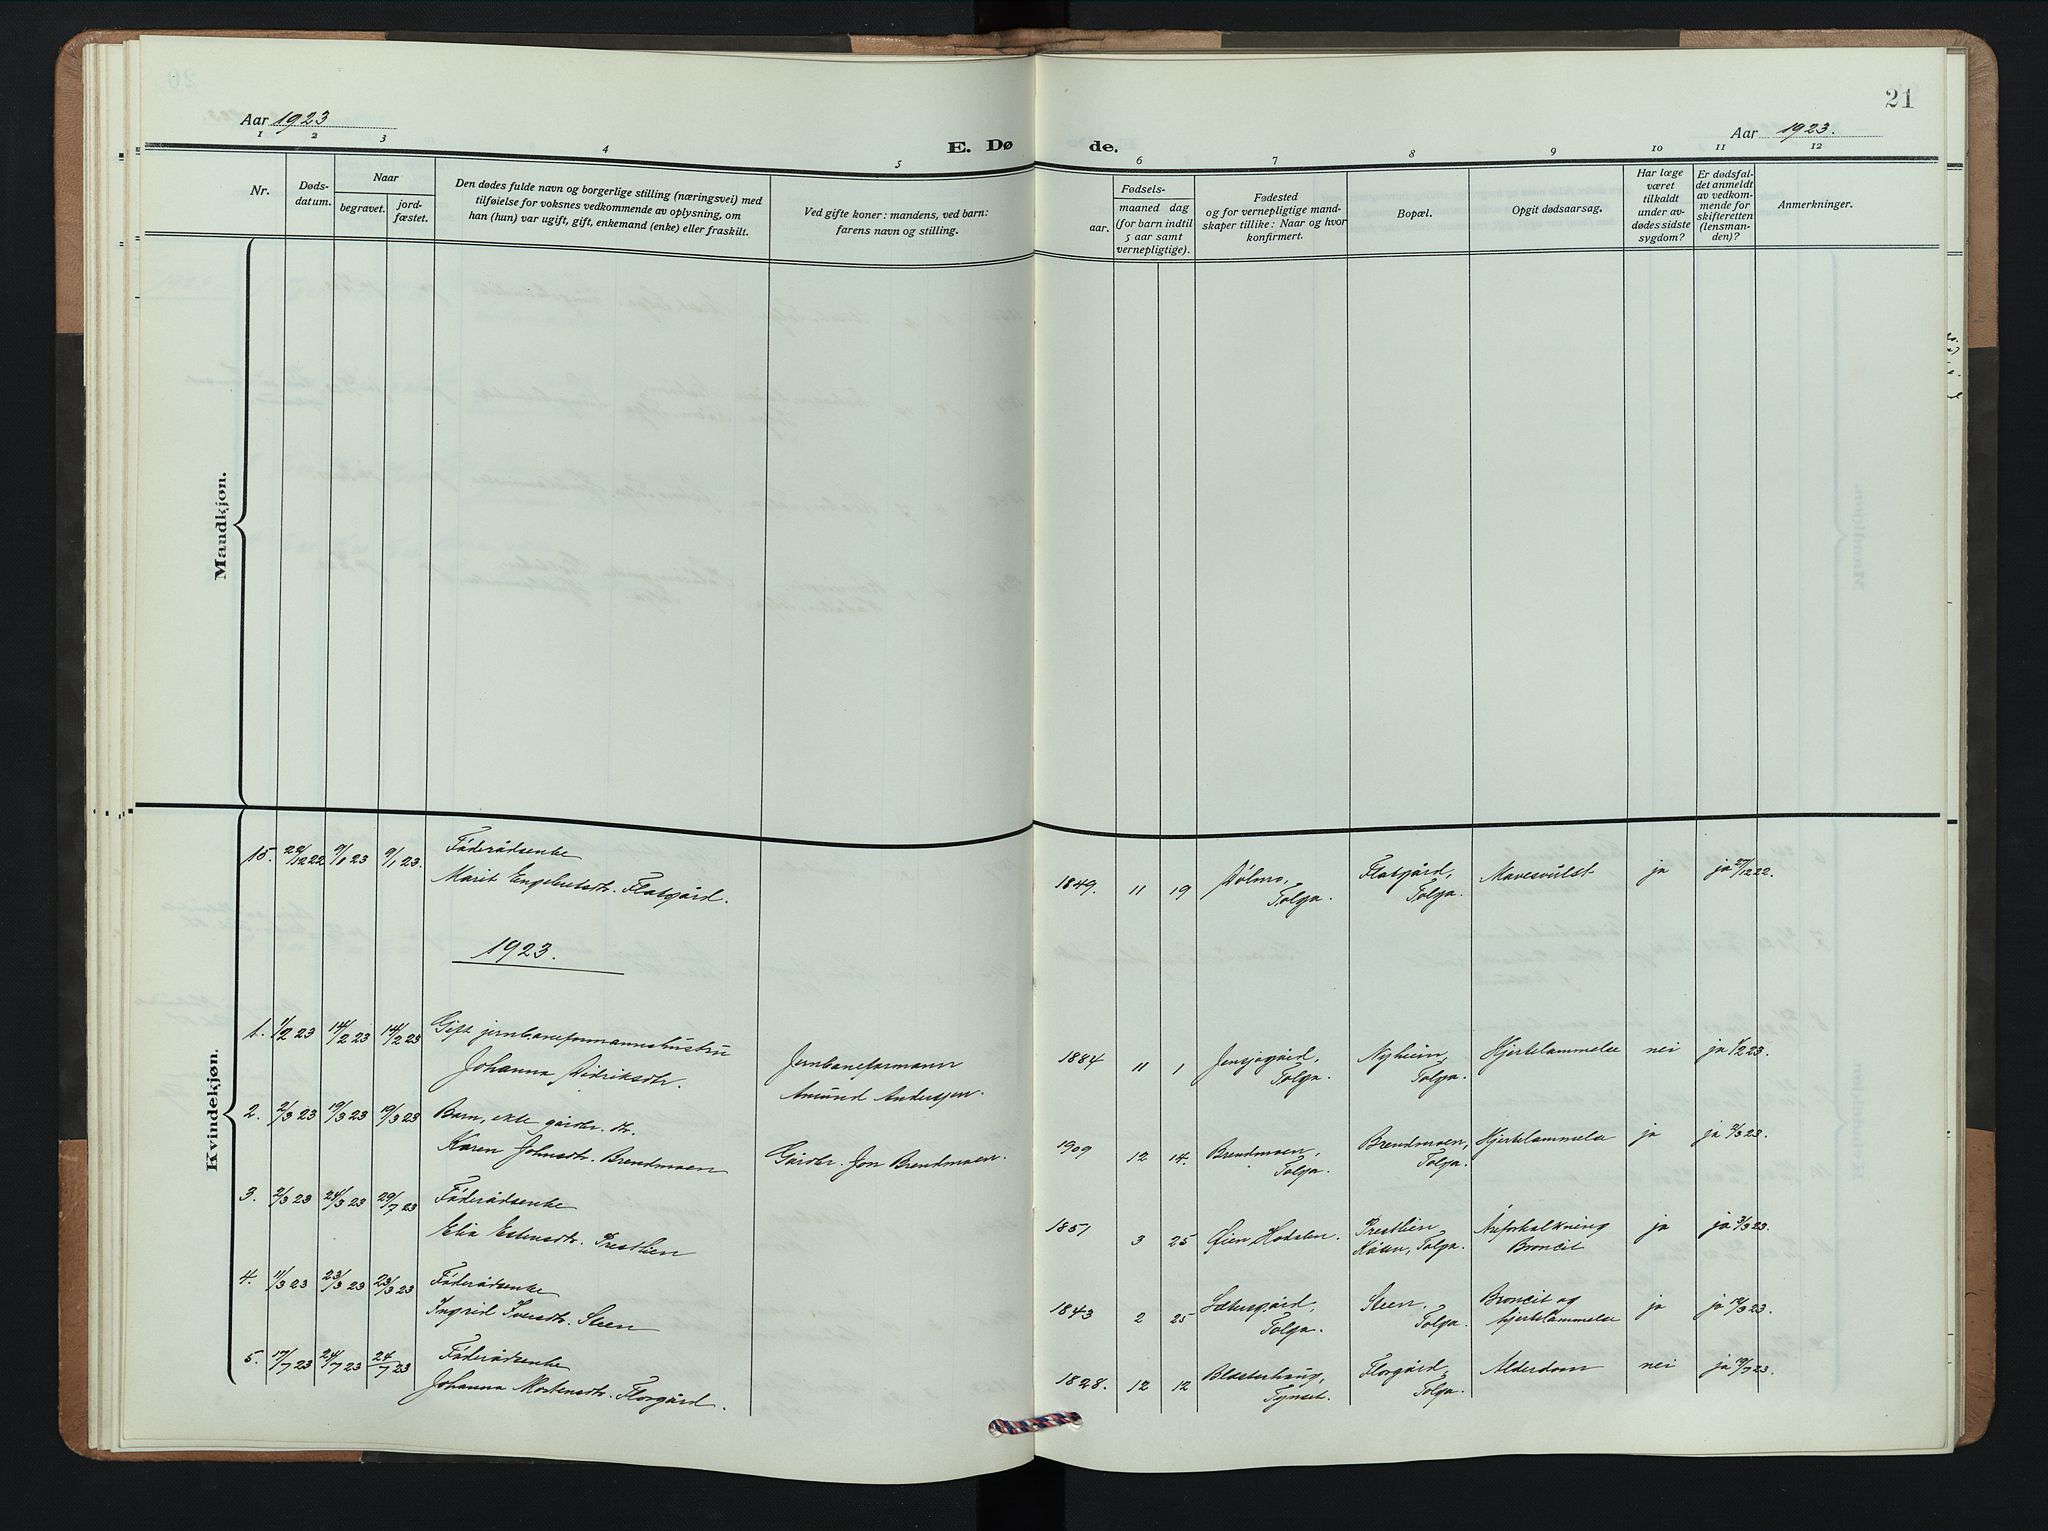 21
Aar 1923
Aar 1923.
E. Døde.
1 2 3 4 5 6 7 8 9 10 11 12
Nr.
Døds-
datum.
Naar
begravet.
jord-
fæstet.
Den dødes fulde navn og borgerlige stilling (næringsvei) med
tilføielse for voksnes vedkommende av oplysning, om
han (hun) var ugift, gift, enkemand (enke) eller fraskilt.
Ved gifte koner: mandens, ved barn:
farens navn og stilling.
Fødsels-
aar.
maaned dag
(for barn indtil
5 aar samt
vernepligtige).
Fødested
og for vernepligtige mand-
skaper tillike: Naar og hvor
konfirmert.
Bopæl.
Opgit dødsaarsag.
Har læge
været
tilkaldt
under av-
dødes sidste
sygdom?
Er dødsfal-
det anmeldt
av vedkom-
mende for
skifteretten
(lensman-
den)?
Anmerkninger.
Mandkjøn.
Kvindekjøn.
15. 22/12 22 9/1 23 9/1 23. Føderådsenke
Marit Engebretsdtr. Flatgård.
1849. 11 19 Vólmo, Tolga. Flatgård, Tolga. Mavesvulst ja ja 27/12 22.
1923.
1. 1/2 23 14/2 23 14/2 23 Gift jernbaneformannshustru
Johanna Didriksdtr.
Jernbaneformann
Amund Anderssen.
1884 11 1 Jensjogård, Tolga. Nyheim, Tolga. Hjertelammelse nei ja 1/2 23.
2. 2/3 23 19/3 23 19/3 23 Barn, ekte gårdbr. dtr.
Karen Johnsdtr. Brendmoen
Gårdbr. Jon Brendmoen.
1909 12 14. Brendmoen, Tolga. Brendmoen, Tolga. Hjertelammelse ja ja 2/3 23.
3. 2/3 23 24/3 23 29/7 23 Føderådsenke
Elia Estensdtr. Prestlien
1851 3 25 Øien, Hodalen. Prestlien Tolga. Åreforkalkning
Broncit ja ja 3/3 23.
4. 11/3 23 23/3 23 23/3 23 Føderådsenke
Ingrid Iversdtr. Steen
1843 2 25 Sætersgård, Tolga. Steen, Tolga. Broncit og
hjertelammelse ja ja 12/3 23.
5. 17/7 23 24/7 23 24/7 23 Føderådsenke
Johanna Mortensdtr. Florgård.
1828. 12 12 Blæsterhaug, Tynset. Florgård, Tolga. Alderdom nei ja 19/7 23.